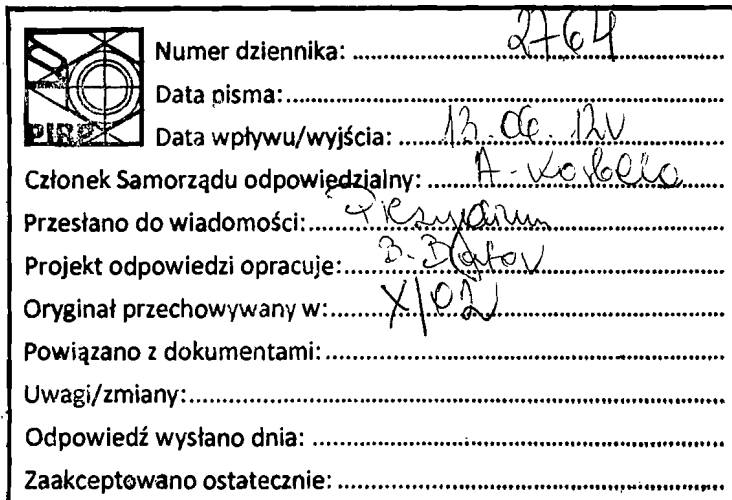 Numer dziennika: 2764
Data pisma:
Data wpływu/wyjścia: 13.06.12
Członek Samorządu odpowiedzialny: A.
Przesłano do wiadomości: Prezydium
Projekt odpowiedzi opracuje: B.
Oryginał przechowywany w: X/02
Powiązano z dokumentami:
Uwagi/zmiany:
Odpowiedź wysłano dnia:
Zaakceptowano ostatecznie: